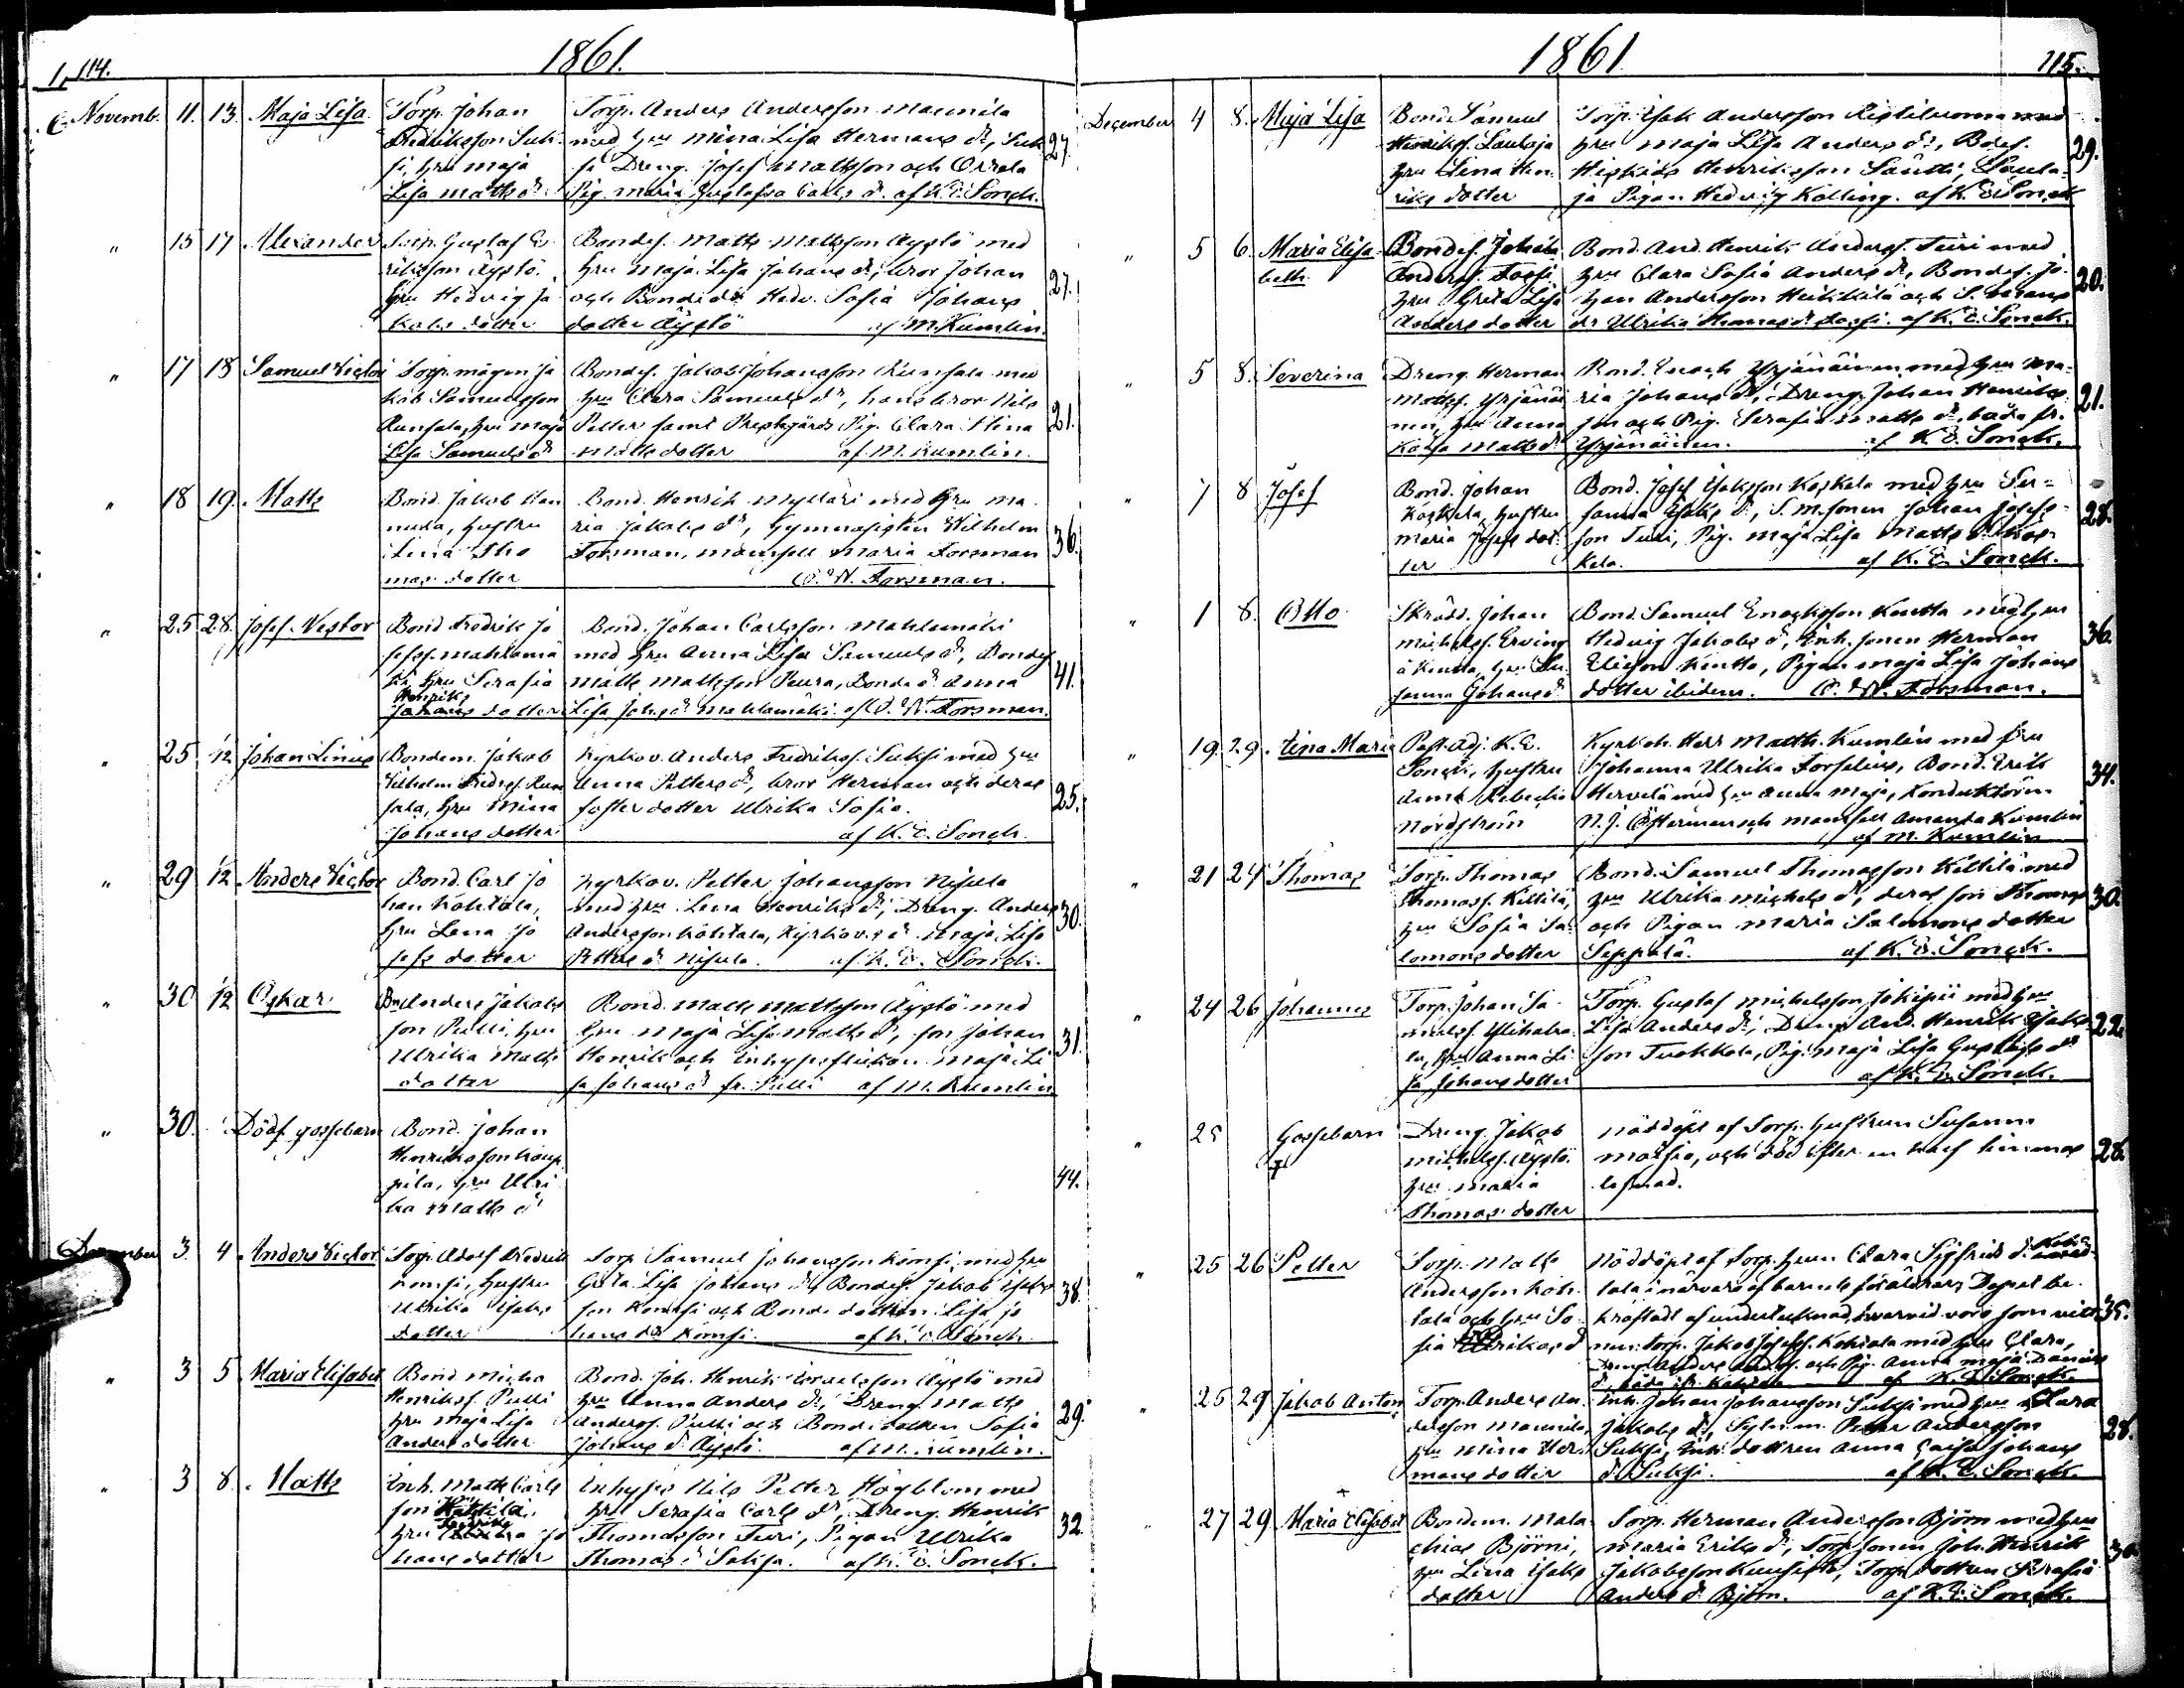 114.
1861.
Novemb. 11. 13. Maja Lisa
Torp. Johan
Fredriksson Suk-
si, hru Maja
Lisa Matts dr
Torp. Anders Andersson Maunila
med hru Mina Lisa Hermans dr, Suk
si Dreng. Josef Mattsson och Orrela
Pig. Maria Gustafva Carls dr. af K. E. Sonck.
27.
" 15 17 Alexander
Torp. Gustaf E-
riksson Äystö.
hru Hedvig Ja
kobs dotter
Bondes. Matts Mattsson Äystö med
hru Maja Lisa Johans dr, bror Johan
och Bonde dr Hedv. Sofia Johans
dotter Äystö af M. Kumlin.
27.
" 17 18 Samuel Victor
Torp. mågen Ja
kob Samuelsson
Runsala, hru Maja
Lisa Samuels dr
Bondes. Jakob Johansson Runsala med
hru Clara Samuels dr, hans bror Nils
Petter samt Prestgårds Pig. Clara Stina
Matts dotter af M. Kumlin.
21.
" 18 19. Matts
Bond. Jakob Han
nuda, hustru
Lena Tho
mas dotter
Bond. Henrik Mylläri med hru Ma
ria Jakobs dr, Gymnasisten Wilhelm
Forsman, mamsell Maria Forsman
O. W. Forsman.
36.
" 25 28. Josef Nestor
Bond Fredrik Jo
sefss. Mahlamä
ki, hru Serafia
Henriks
Johans dotter
Bond. Johan Carlsson Mahlamäki
med hru Anna Lisa Samuels dr, Bondes
Matts Mattsson Peura, Bonde dr Anna
Lisa Johs dr Mahlamäki af O. W. Forsman.
41.
" 25 1/12 Johan Linus
Bondem. Jakob
Wilhelm Fredrss. Run
sala, hru Mina
Johans dotter
Kyrkov. Anders Fredrikss. Suksi med hru
Anna Petters dr, bror Herman och deras
foster dotter Ulrika Sofia.
af K. E. Sonck.
25.
" 29 1/12 Anders Victor
Bond. Carl Jo
han Kohtala,
hru Lena Jo
sefs dotter
Kyrkov. Petter Johansson Nisula
med hru Lena Henriks dr, Dreng. Anders
Andersson Kohtala, Kyrkov.s dr Maja Lisa
Petters dr Nisula. af K. E. Sonck.
30.
" 30 1/12 Oskar
Bn Anders Jakobs
son Pulli, hru
Ulrika Matts
dotter
Bond. Matts Mattsson Äystö med
hru Maja Lisa Matts dr, son Johan
Henrik och inhyses flickan Maja Li
sa Johans dr fr. Pulli af M. Kumlin
31.
" 30. Dödf. gossebarn
Bond. Johan
Henriksson Kaup
pila, hru Ulri
ka Matts dr
44.
December 3. 4. Anders Victor
Torp. Adolf Fredrik
Komsi, hustru
Ulrika Isaks
dotter
Torp Samuel Johansson Komsi med hru
Greta Lisa Johans dr, Bondes. Jakob Isaks
son Komsi och Bonde dottren Lisa Jo
hans dr Komsi. af K. E. Sonck.
38.
" 3 5 Maria Elisabet
Bond. Micha
Henrikss. Pulli
hru Maja Lisa
Anders dotter
Bond. Joh. Henrik Israelsson Äystö med
hru Anna Anders dr, Dreng. Matts
Anderss. Pulli och Bonde dottren Sofia
Johans dr Äystö. af M. Kumlin.
29.
" 3 8. Matts
Inh. Matts Carls
son
hru Fredrika Jo
hans dotter
Inhyses Nils Petter Högblom med
hru Serafia Carls dr, Dreng. Henrik
Thomasson Turi, Pigan Ulrika
Thomas dr Saksa. af K. E. Sonck.
32.
1861
115.
December 4 8. Maja Lisa
Bond. Samuel
Henrikss. Laulaja
hru Lena Hen-
riks dotter
Torp. Isak Andersson Ristiluoma med
hru Maja Lisa Anders dr, Bdes.
Hiskias Henriksson Säntti, Laula-
ja Pigan Hedvig Kölling. af K. E. Sonck
29.
" 5 6. Maria Elisa
beth
Bondes. Johan
Anderss. Fossi
hru Greta Lisa
Anders dotter
Bond. And. Henrik Anderss. Turi med
hru Clara Sofia Anders dr, Bondes. Jo-
han Andersson Heikkilä och S. mans
dr Ulrika Thomas dr Fossi. af K. E. Sonck.
20.
" 5 8. Severina
Dreng. Herman
Mattss. Yrjänäi
nen, hru Anna
Kaisa Matts dr
Bond. Enoch Yrjänäinen med hru Ma-
ria Johans dr, Dreng. Johan Henriks
son och Pig. Serafia Matts dr, båda fr.
Yrjänäinen. af K. E. Sonck.
21.
" 7 8 Josef
Bond. Johan
Koskela, hustru
Maria Josefs dot-
ter
Bond. Josef Isaksson Koskela med hru Su-
sanna Isaks dr, S. m. sonen Johan Josefs-
son Turi, Pig. Maja Lisa Matts dr Kos-
kela. af K. E. Sonck.
28.
" 1 8. Otto
Skrädd. Johan
Michelss. Erving
å Kentta, hru Su
sanna Johans dr
Bond. Samuel Enochsson Kentta med hru
Hedvig Jakobs dr, Inh. sonen Herman
Eliesson Kentta, Pigan Maja Lisa Johans
dotter ibidem. O. W. Forsman.
36.
" 19. 29. Aina Maria
Past. adj. K. E.
Sonck, hustru
Anna Rebecka
Nordström
Kyrkoh. Herr Matth. Kumlin med fru
Johanna Ulrika Forselius, Bond. Erik
Hervelä med hru Anna Maja, Konduktören
N. J. Österman och mamsell Amanda Kumlin
af M. Kumlin
34.
" 21 24 Thomas
Torp. Thomas
Thomass. Kittilä,
hru Sofia Sa
lomons dotter
Bond. Samuel Thomasson Kittilä med
hru Ulrika Michels dr, deras son Thomas
och Pigan Maria Salomons dotter
Seppälä. af K. E. Sonck.
30.
" 24 26 Johannes
Torp. Johan Sa-
muelss.
hru Anna Li
sa Johans dotter
Torp. Gustaf Michelsson Jokipii med hru
Lisa Anders dr, Dreng And. Henrik Isaks
son Tuokkola, Pig. Maja Lisa Gustafs dr
af K. E. Sonck.
22.
" 25 Gossebarn
†
Dreng. Jakob
Michelss. Äystö.
hru Maria
Thomas dotter
Nöddöpt af Torp. hustrun Susanna
och död efter en half timmas
lefnad.
28.
" 25 26 Petter
Torp. Matts
Andersson Koh-
tala och hru So-
fia Ulrikas dr
Nöddöpt af Torp. hrun Clara Sigfrids dr Koh-
tala i närvaro af barnets föräldrar, Dopet be-
kräftadt af undertecknad, hvarvid voro som vitt-
nen: torp. Jakob Josefss. Kohtala med hru Clara,
Dreng Anders Anderss. och Pig. Anna Maja Daniels
dr, båda ifr. Kohtala af K. E. Sonck.
35.
" 25 29 Jakob Anton
Torp. Anders An-
dersson Maunila,
hru Mina Her-
mans dotter
Inh. Johan Johansson Suksi med hru Clara
Jakobs dr, Sytn. m. Petter Andersson
Suksi, Inh. dottren Anna Caisa Johans
dr Suksi. af K. E. Sonck.
28.
" 27 29 Maria Elisabet
Bondem. Mala
chias Björni,
hru Lena Isaks
dotter
Torp. Herman Andersson Björn med hru
Maria Eriks dr, Torp. sonen Joh. Henrik
Jakobsson Kuusisto, Torp. dottren Serafia
Anders dr Björn. af K. E. Sonck.
30